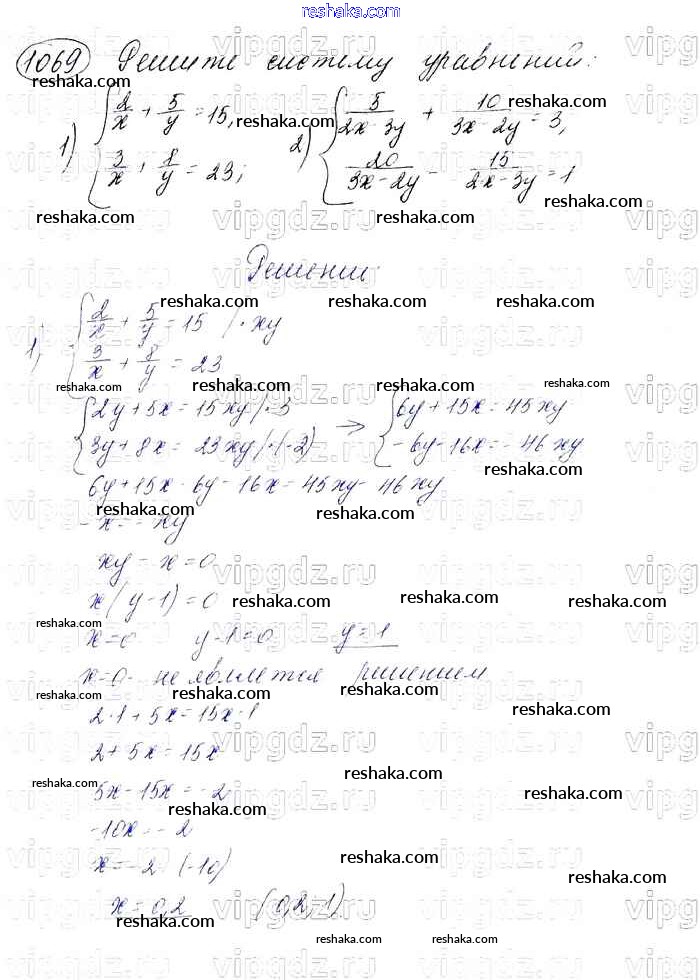 reshaka.com
1069 Решите систему уравнений:
1) { 2/x + 5/y = 15, 3/x + 8/y = 23; 2) { 5/(2x-3y) + 10/(3x-2y) = 3, 20/(3x-2y) - 15/(2x-3y) = 1
Решение:
1) { 2/x + 5/y = 15 /·xy
3/x + 8/y = 23
{ 2y + 5x = 15xy /·3 → { 6y + 15x = 45xy
3y + 8x = 23xy /·(-2) -6y - 16x = -46xy
6y + 15x - 6y - 16x = 45xy - 46xy
-x = -xy
xy - x = 0
x(y-1) = 0
x = 0 y-1 = 0 y = 1
x=0 - не является решением
2·1 + 5x = 15x·1
2 + 5x = 15x
5x - 15x = -2
-10x = -2
x = -2 (-10)
x = 0,2 (0,2; 1)